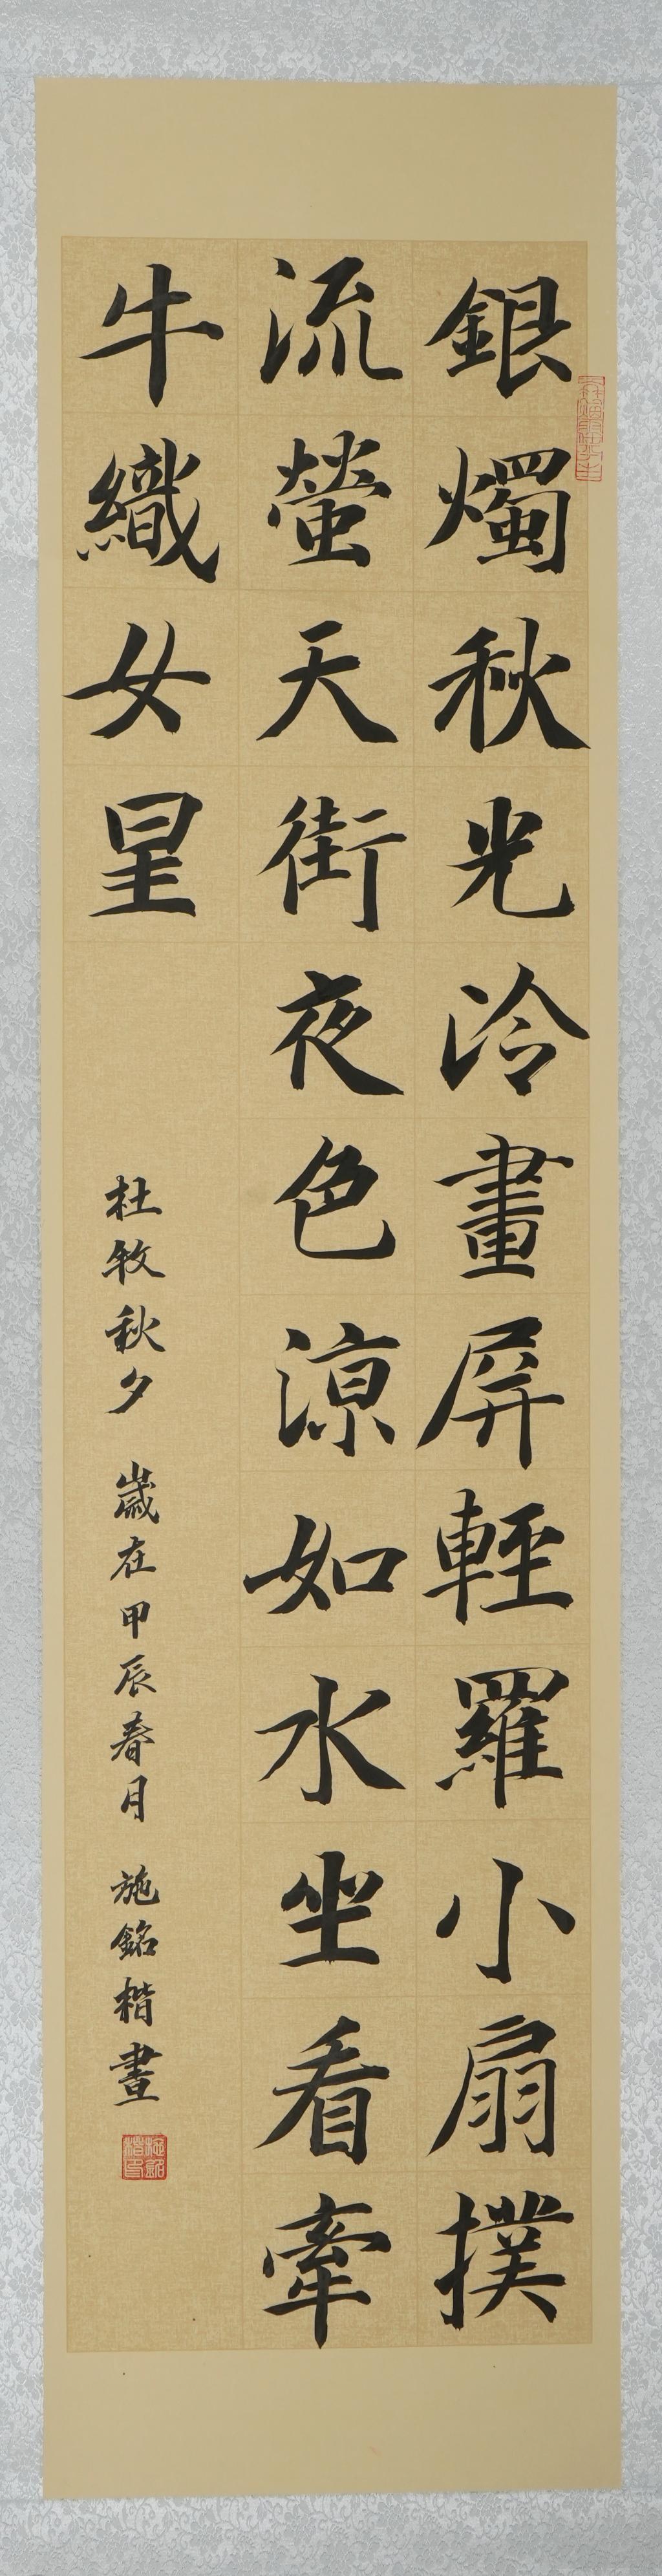 銀燭秋光冷畫屏輕羅小扇撲
流螢天街夜色涼如水坐看牽
牛織女星
杜牧秋夕 歲在甲辰春月 施銘楷書